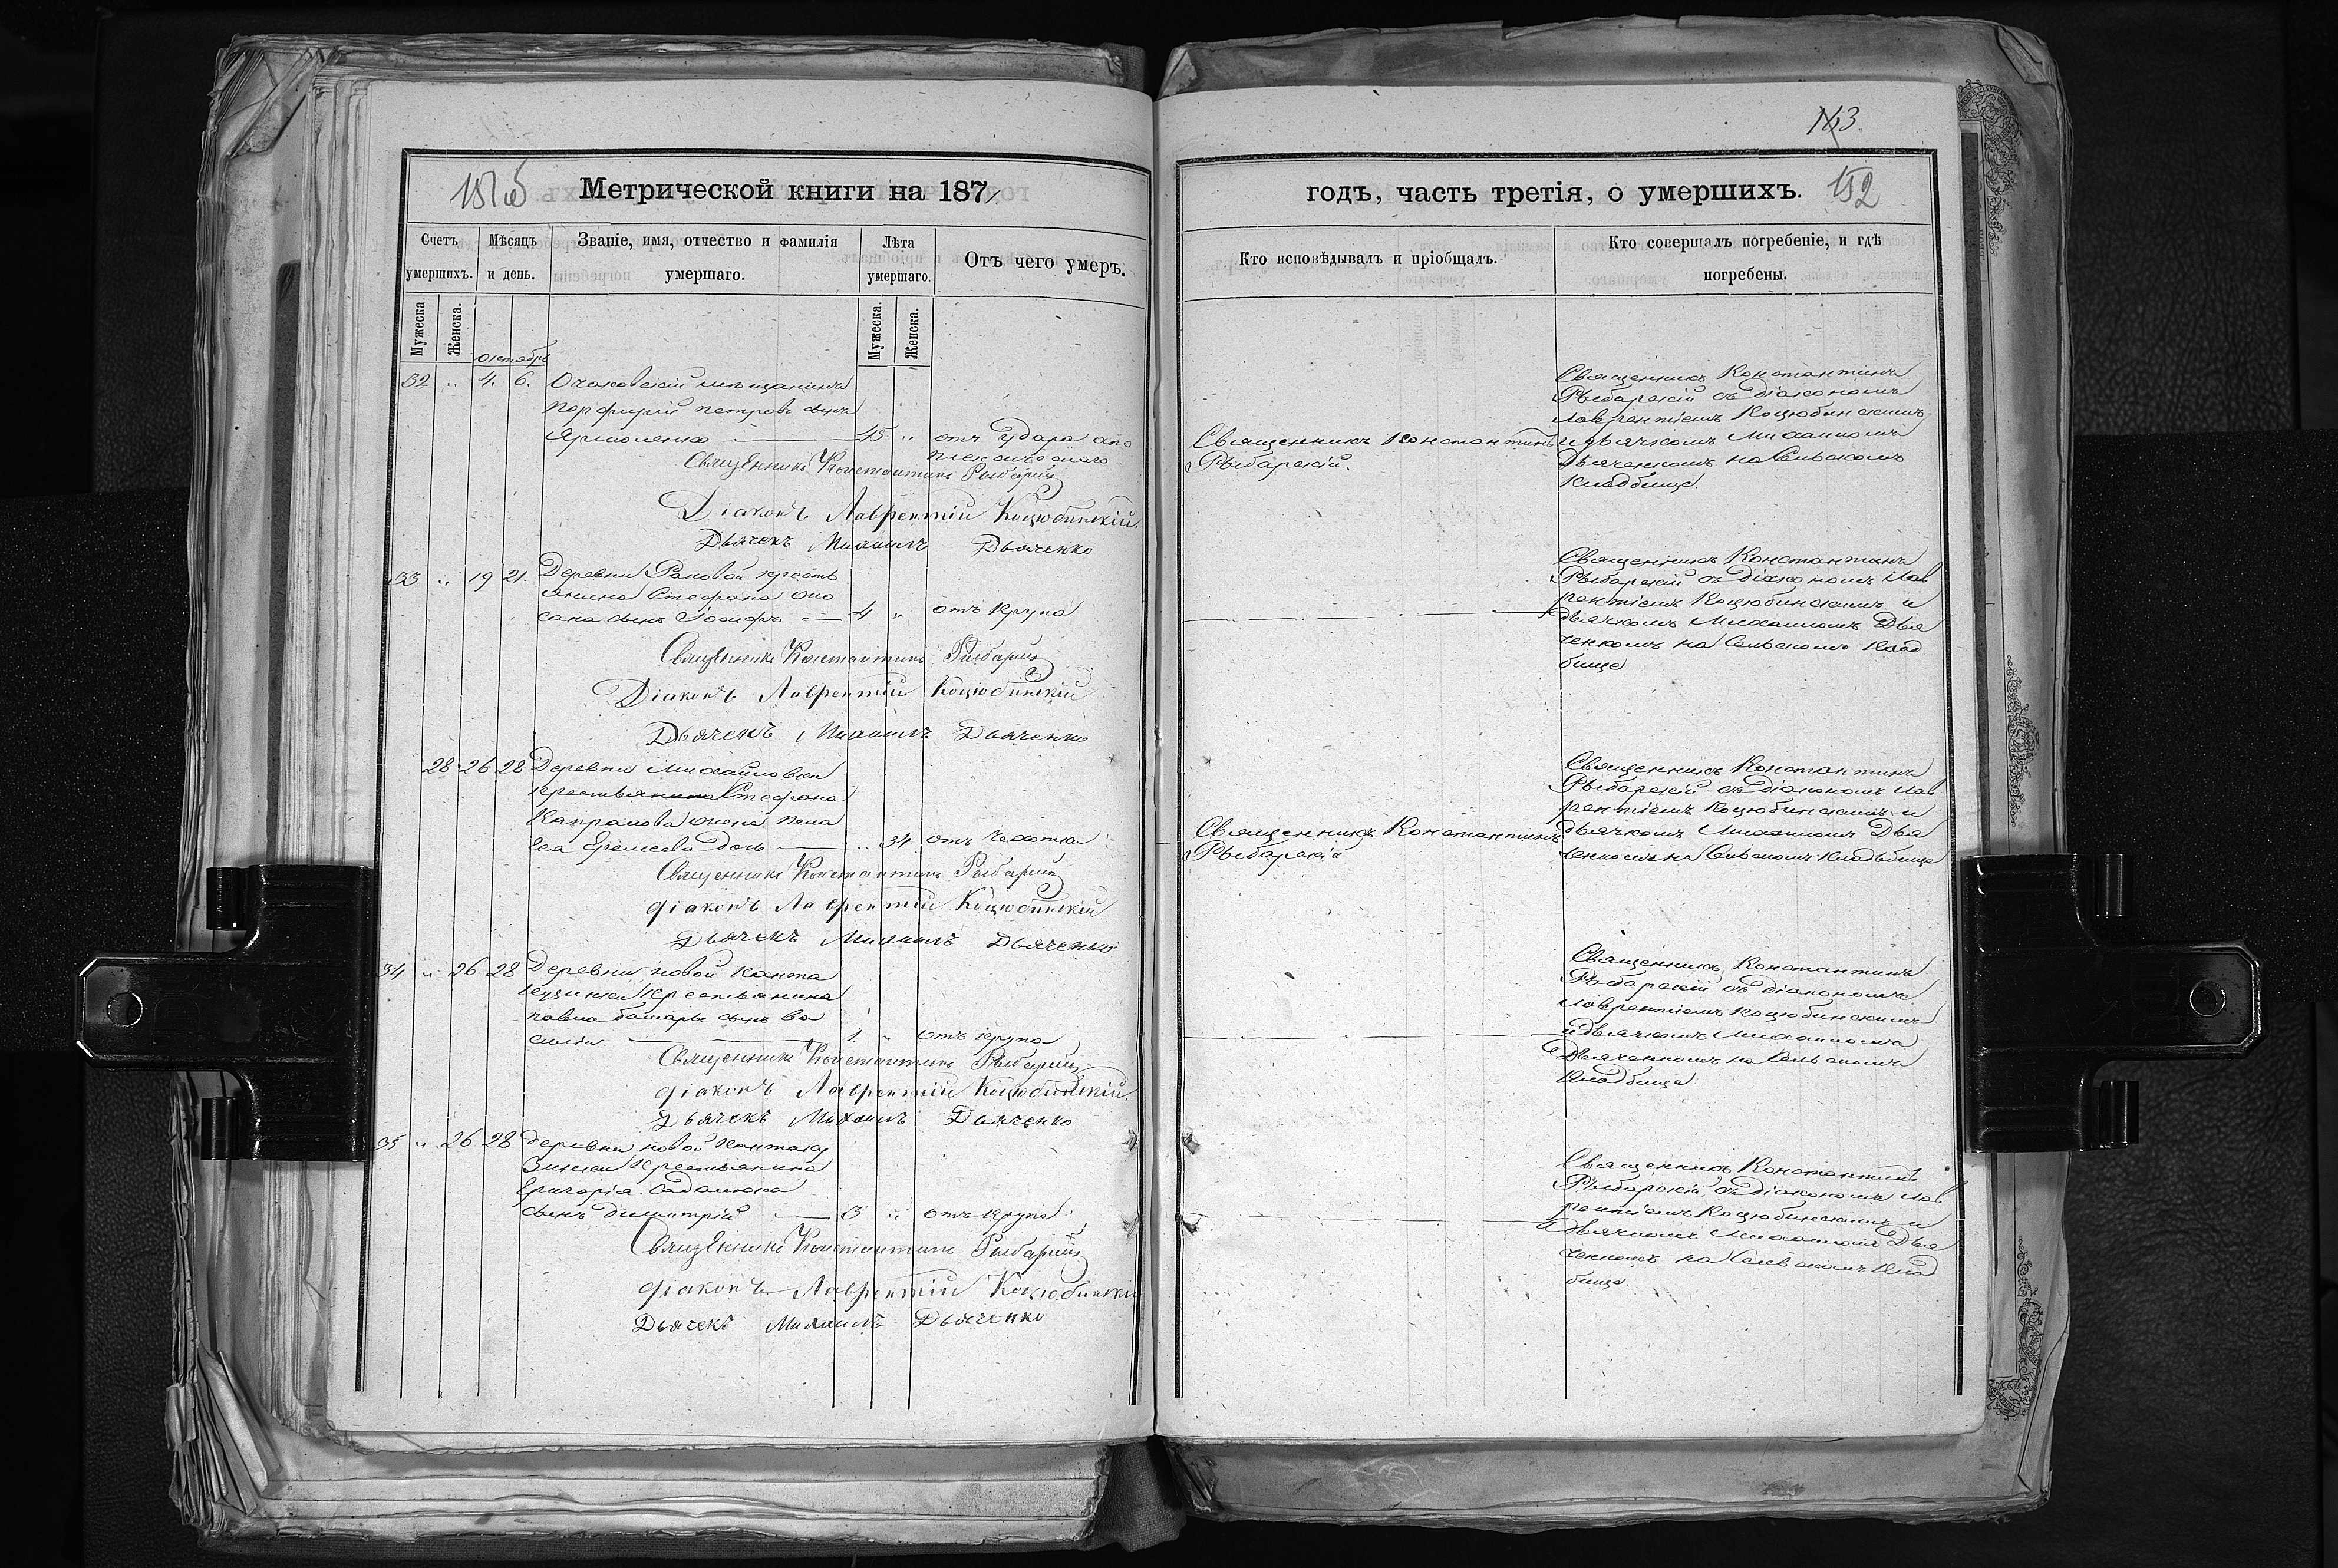 Метрической книги на 187
годъ, часть третія, о умершихъ.
152
Счетъ умершихъ.
Мѣсяцъ и день.
Званіе, имя, отчество и фамилія умершаго.
Лѣта умершаго.
Отъ чего умеръ.
Кто исповѣдывалъ и пріобщалъ.
Кто совершалъ погребеніе, и гдѣ погребены.
Мужеска.
Женска.
Мужеска.
Женска.
Октябрь
32 " 4. 6. Очаковскій мѣщанинъ
Порфирій Петровъ сынъ
Ярмоленко 45 " отъ удара апо
плексическаго
Священникъ Константинъ Рыбарскій
Діаконъ Лаврентій Коцюбинскій.
Дьячекъ Михаилъ Дьяченко
Священникъ Константинъ
Рыбарскій.
Священникъ Константинъ
Рыбарскій съ діакономъ
Лаврентіемъ Коцюбинскимъ
и дьячкомъ Михаиломъ
Дьяченкомъ на Сельскомъ
Кладбище.
33 " 19 21. Деревни Раковой кресть
янина Стефана
сынъ Іосифъ 4 " отъ крупа
Священникъ Константинъ Рыбарскій
Діаконъ Лаврентій Коцюбинскій
Дьячекъ Михаилъ Дьяченко
Священникъ Константинъ
Рыбарскій съ діакономъ Лав
рентіемъ Коцюбинскимъ и
дьячкомъ Михаиломъ Дья
ченкомъ на Сельскомъ Клад
бище
28 26 28 Деревни Михайловки
крестьянина Стефана
жена Пела
гея дочь " 34. отъ чахотки
Священникъ Константинъ Рыбарскій
Діаконъ Лаврентій Коцюбинскій
Дьячекъ Михаилъ Дьяченко
Священникъ Константинъ
Рыбарскій
Священникъ Константинъ
Рыбарскій съ діакономъ Лав
рентіемъ Коцюбинскимъ и
дьячкомъ Михаиломъ Дья
ченкомъ на Сельскомъ Кладбище
34 " 26 28 Деревни новой Канта
кузинки крестьянина
Павла сынъ Ва
силій 1 " отъ крупа
Священникъ Константинъ Рыбарскій
Діаконъ Лаврентій Коцюбинскій.
Дьячекъ Михаилъ Дьяченко
Священникъ Константинъ
Рыбарскій съ діакономъ
Лаврентіемъ Коцюбинскимъ
и дьячкомъ Михаиломъ
Дьяченкомъ на Сельскомъ
Кладбище.
35 " 26 28 Деревни новой Кантаку
зинки крестьянина
Григорія
сынъ Димитрій 3 " отъ крупа.
Священникъ Константинъ Рыбарскій
Діаконъ Лаврентій Коцюбинскій
Дьячекъ Михаилъ Дьяченко
Священникъ Константинъ
Рыбарскій съ діакономъ Лав
рентіемъ Коцюбинскимъ и
дьячкомъ Михаиломъ Дья
ченкомъ на Сельскомъ Клад
бище.